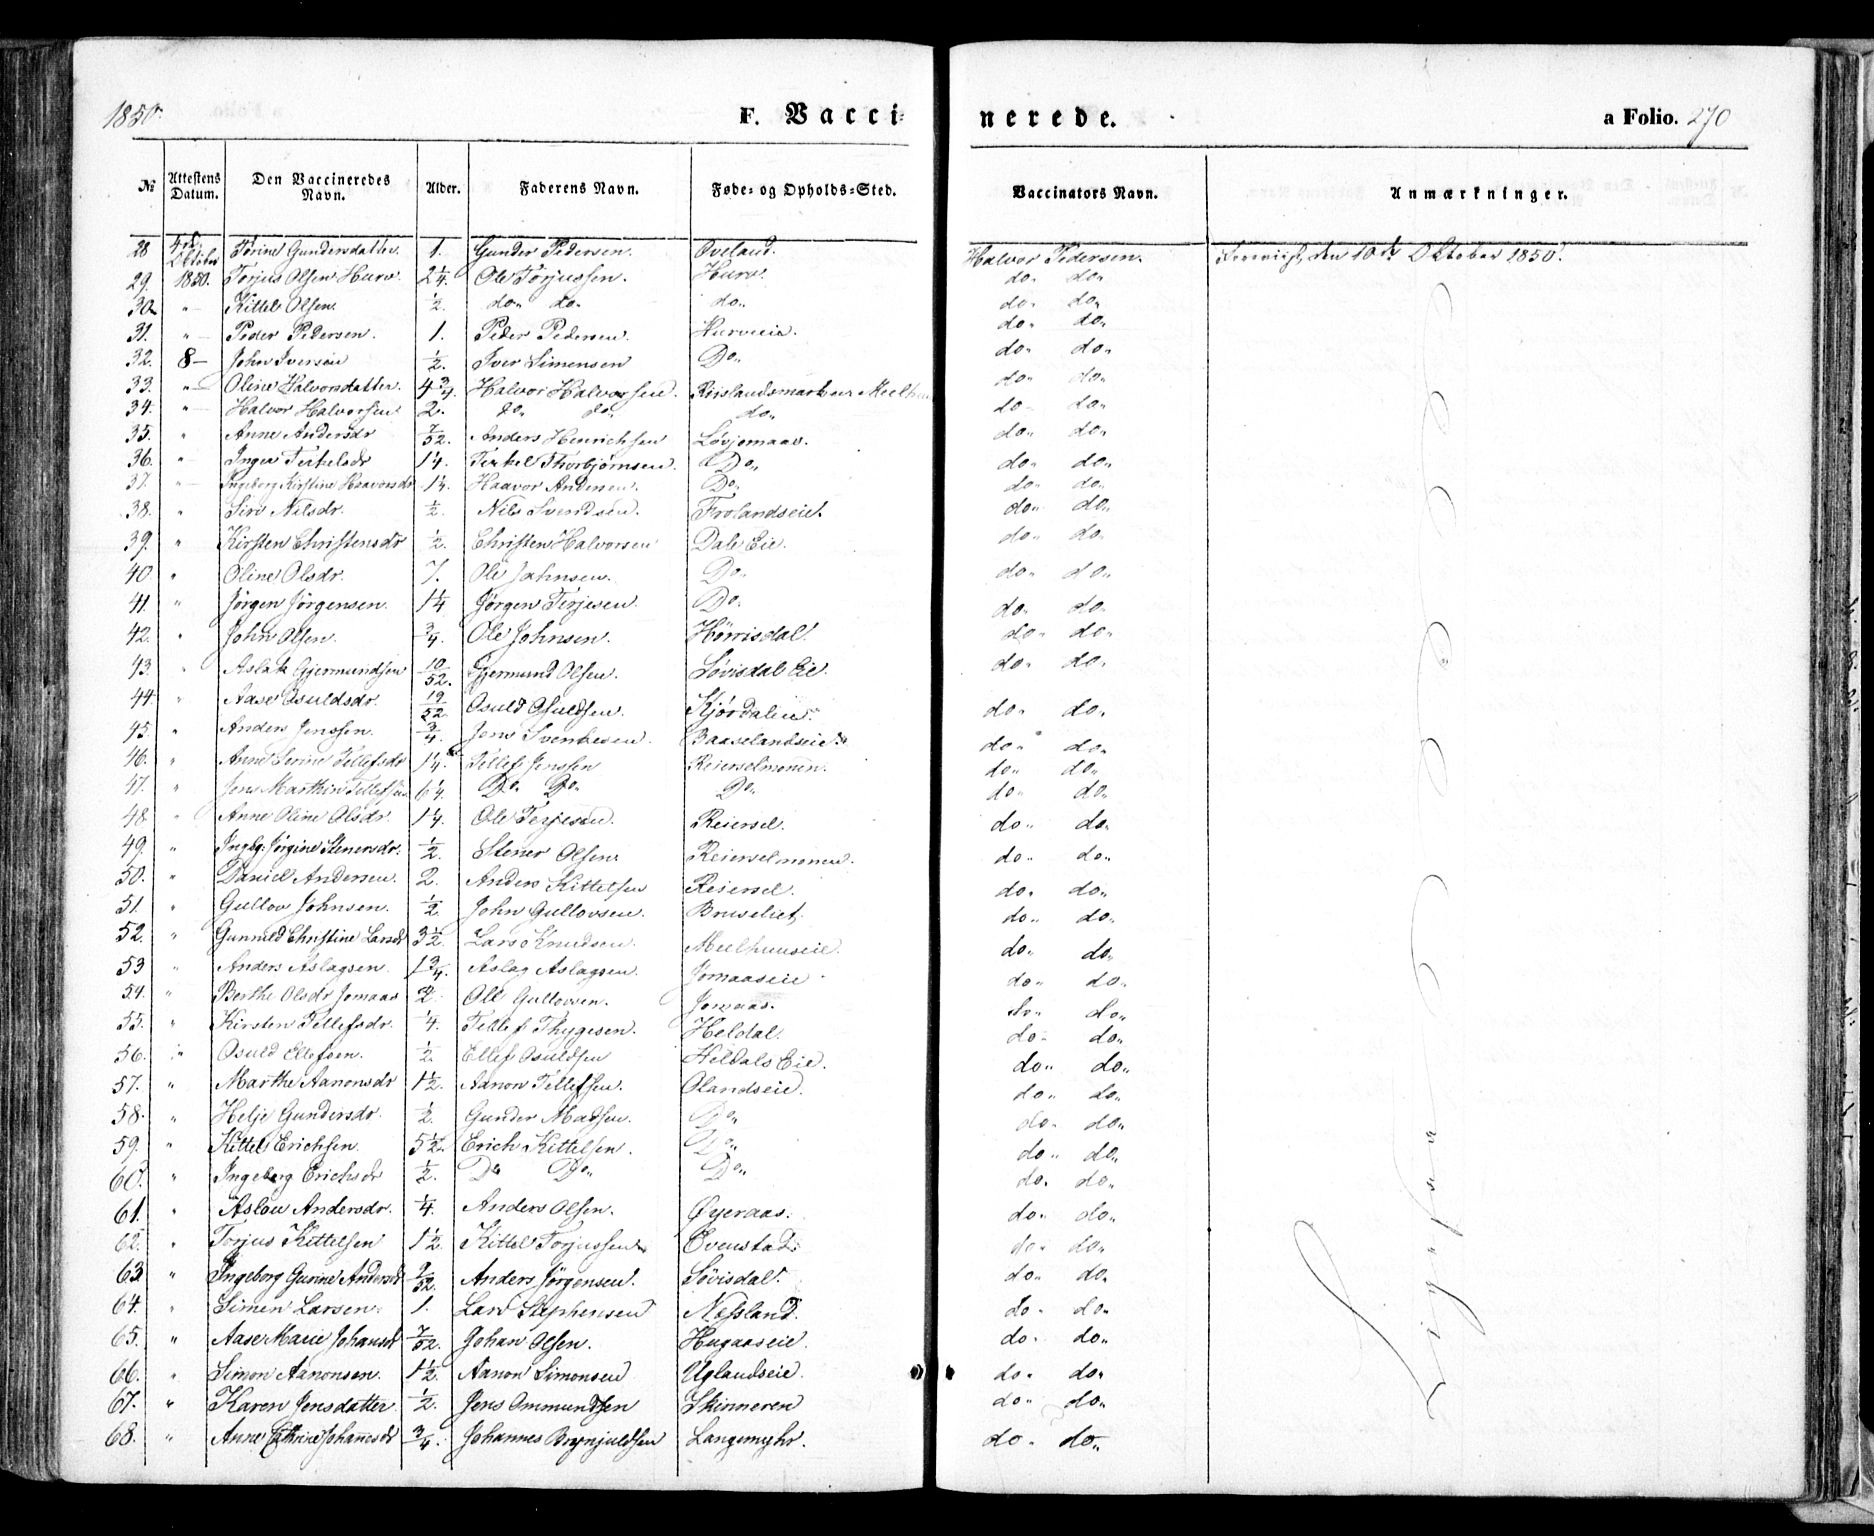 1850.
F. Vacci-
nerede.
a Folio. 270
№ Attestens Datum. Den Vaccineredes Navn. Alder. Faderens Navn. Føde- og Opholds-Sted. Vaccinators Navn. Anmærkninger.
28 4de Oktober Torine Gundersdatter. 1. Gunder Pedersen. Oveland. Halvor Pedersen. den 10de Oktober 1850.
29. 1850. Torjus Olsen Hurv. 2 1/4 Ole Torjussen. Hurv. do. do.
30. " Kittel Olsen. 1/2. do. do. do. do. do.
31. " Peder Pedersen. 1. Peder Pedersen. Hurveeie. do. do.
32. 8 – John Iversen 1/2. Iver Simensen Do. do. do.
33. " Oline Halvorsdatter. 4 3/4. Halvor Halvorsen. do. do.
34. " Halvor Halvorsen 2. do. do. do. do. do.
35. " Anne Andersdr 7/52. Anders Henrichsen Løvjomaas. do. do.
36. " Inger Terkelsdr 1 1/4. Terkel Thorbjørnsen. Do. do. do.
37. " Ingeborg Kirstine Haavorsdr 1 1/4. Haavor Andersen. Do. do. do.
38. " Siri Nilsdr. 1/2. Nils Svendsen. Frolandseie. do. do.
39. " Kirsten Christensdr 1/2. Christen Halvorsen Dale Eie. do. do.
40. " Oline Olsdr. 7. Ole Johnsen. Do. do. do.
41. " Jørgen Jørgensen. 1 1/4 Jørgen Terjesen. Do. do. do.
42. " John Olsen. 3/4. Ole Johnsen. Hørrisdal. do. do.
43. " Aslak Gjermundsen 10/52. Gjermund Olsen. Løvisdal Eie. do. do.
44. " Aase Osuldsdr. 19/52. Osuld Osuldsen. Kjørdalen. do. do.
45. " Anders Jenssen. 3/4. Jens Svenkesen. Baaselandseie. do. do.
46. " Anne Serine Tellefsdr 1 1/4. Tellef Jenssen Reierselmonen. do. do.
47. " Jens Marthin Tellefsen 6 1/4. Do. Do. Do. do. do.
48. " Anne Oline Olsdr. 1 1/4. Ole Terjesen. Reiersel. do. do.
49 " Ingbg. Jørgine Stenersdr. 1/2. Stener Olsen. Reierselmonen. do. do.
50. " Daniel Andersen. 2. Anders Kittelsen Reiersel. do. do.
51. " Gullov Johnsen. 1/2. John Gullovsen. do. do.
52. " Gunnild Christine Larsdr 3 1/2. Lars Knudsen. Meelhuuseie. do. do.
53 " Anders Aslagsen. 1 3/4. Aslag Aslagsen. Jomaaseie do. do.
54. " Berthe Olsdr Jomaas 2. Ole Gullovsen. Jomaas. do. do.
55. " Kirsten Tellefsdr. 1/4. Tellef Thygesen. Heldal. do. do.
56. " Osuld Ellefsen. 1/2. Ellef Osuldsen Heldals Eie. do. do.
57. " Marthe Aanonsdr 1 1/2. Aanon Tellefsen. Olandseie. do. do.
58. " Helje Gundersdr. 1/2. Gunder Madsen. Do. do. do.
59. " Kittel Erichsen. 5 1/2. Erich Kittelsen. Do. do. do.
60. " Ingeborg Erichsdr 1/2. Do Do. Do. do. do.
61. " Aslou Andersdr. 1/4. Anders Olsen. Øyeraas. do. do.
62. " Torjus Kittelsen 1 1/2. Kittel Torjussen Ovenstad. do. do.
63 " Ingeborg Gurine Andersdr 9/52. Anders Jørgensen. Løvisdal. do. do.
64. " Simen Larsen. 1. Lars Stephensen Nessland. do. do.
65. " Aase Marie Johansdr 7/52. Johan Olsen. Hugaaseie. do. do.
66. " Simon Aanonsen. 1 1/2. Aanon Simonsen Uglandseie. do. do.
67. " Karen Jensdatter 1/2. Jens Ommundsen Skinneren do. do.
68. " Anne Cathrine Johannesdr 3/4. Johannes Brynjuldsen Langemyhr. do. do.